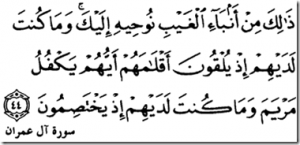 ذَٰلِكَ مِنْ أَنۢبَآءِ ٱلْغَيْبِ نُوحِيهِ إِلَيْكَ ۚ وَمَا كُنتَ
لَدَيْهِمْ إِذْ يُلْقُونَ أَقْلَٰمَهُمْ أَيُّهُمْ يَكْفُلُ
مَرْيَمَ وَمَا كُنتَ لَدَيْهِمْ إِذْ يَخْتَصِمُونَ ﴿٤٤﴾
سورة آل عمران